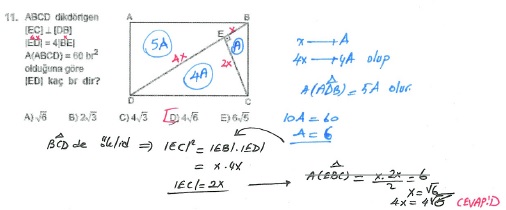 11. ABCD dikdörtgen
[EC] ⊥ [DB]
|ED| = 4|BE|
4x x
A(ABCD) = 60 br²
olduğuna göre
|ED| kaç br dir?
A) √6 B) 2√3 C) 4√3 D) 4√6 E) 6√5
A B
x
E
5A A
4x 2x
4A
D C
x → A
4x → 4A olup
A(ADB) = 5A olur.
10A = 60
A = 6
BCD de Öklid ⇒ |EC|² = |EB|.|ED|
= x.4x
|EC| = 2x
A(EBC) = x.2x / 2 = 6
x = √6
4x = 4√6
CEVAP: D